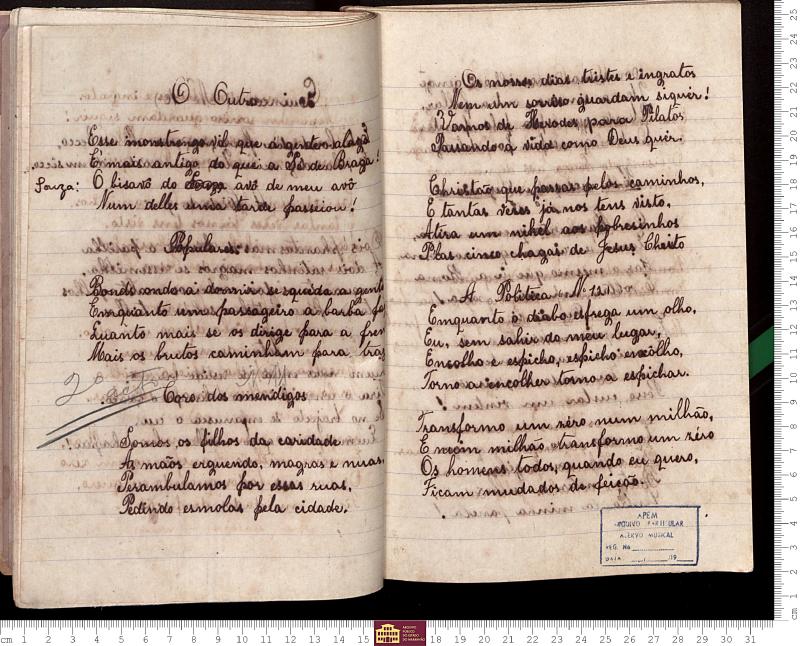 O Outro
Esse monstrengo vil que a gente alaga
E' mais antigo do que a Sé de Braga!
Souza: O bisavô do avô de meu avô
Num delles uma tarde passeiou!
Populares
Bonde onde a dormir se squeda a gente
Emquanto um passageiro a barba faz
Quanto mais se os dirige para a frente
Mais os brutos caminham para traz
2º
Coro dos mendigos
Somos os filhos da caridade
As mãos erguendo, magras e nuas,
Perambulamos por essas ruas,
Pedindo esmolas pela cidade.
Os nossos dias tristes e ingratos
Nem um sorriso guardam siquer!
Vamos de Herodes para Pilatos
Passando a vida como Deus quer.
Christão que passas pelos caminhos,
E tantas vezes já nos tens visto,
Atira um nikel aos pobresinhos
Plas cinco chagas de Jesus Christo
A Politica Nº 12
Emquanto o diabo esfrega um olho,
Eu, sem sahir do meu lugar,
Encolho e espicho, espicho encolho,
Torno a encolher torno a espichar.
Transformo um zéro num milhão,
E num milhão transformo um zéro
Os homens todos, quando eu quero,
Ficam mudados de feição.
APEM
ARQUIVO PARTICULAR
ACERVO MUSICAL
REG. No
DATA / /19
ARQUIVO PÚBLICO DO ESTADO DO MARANHÃO